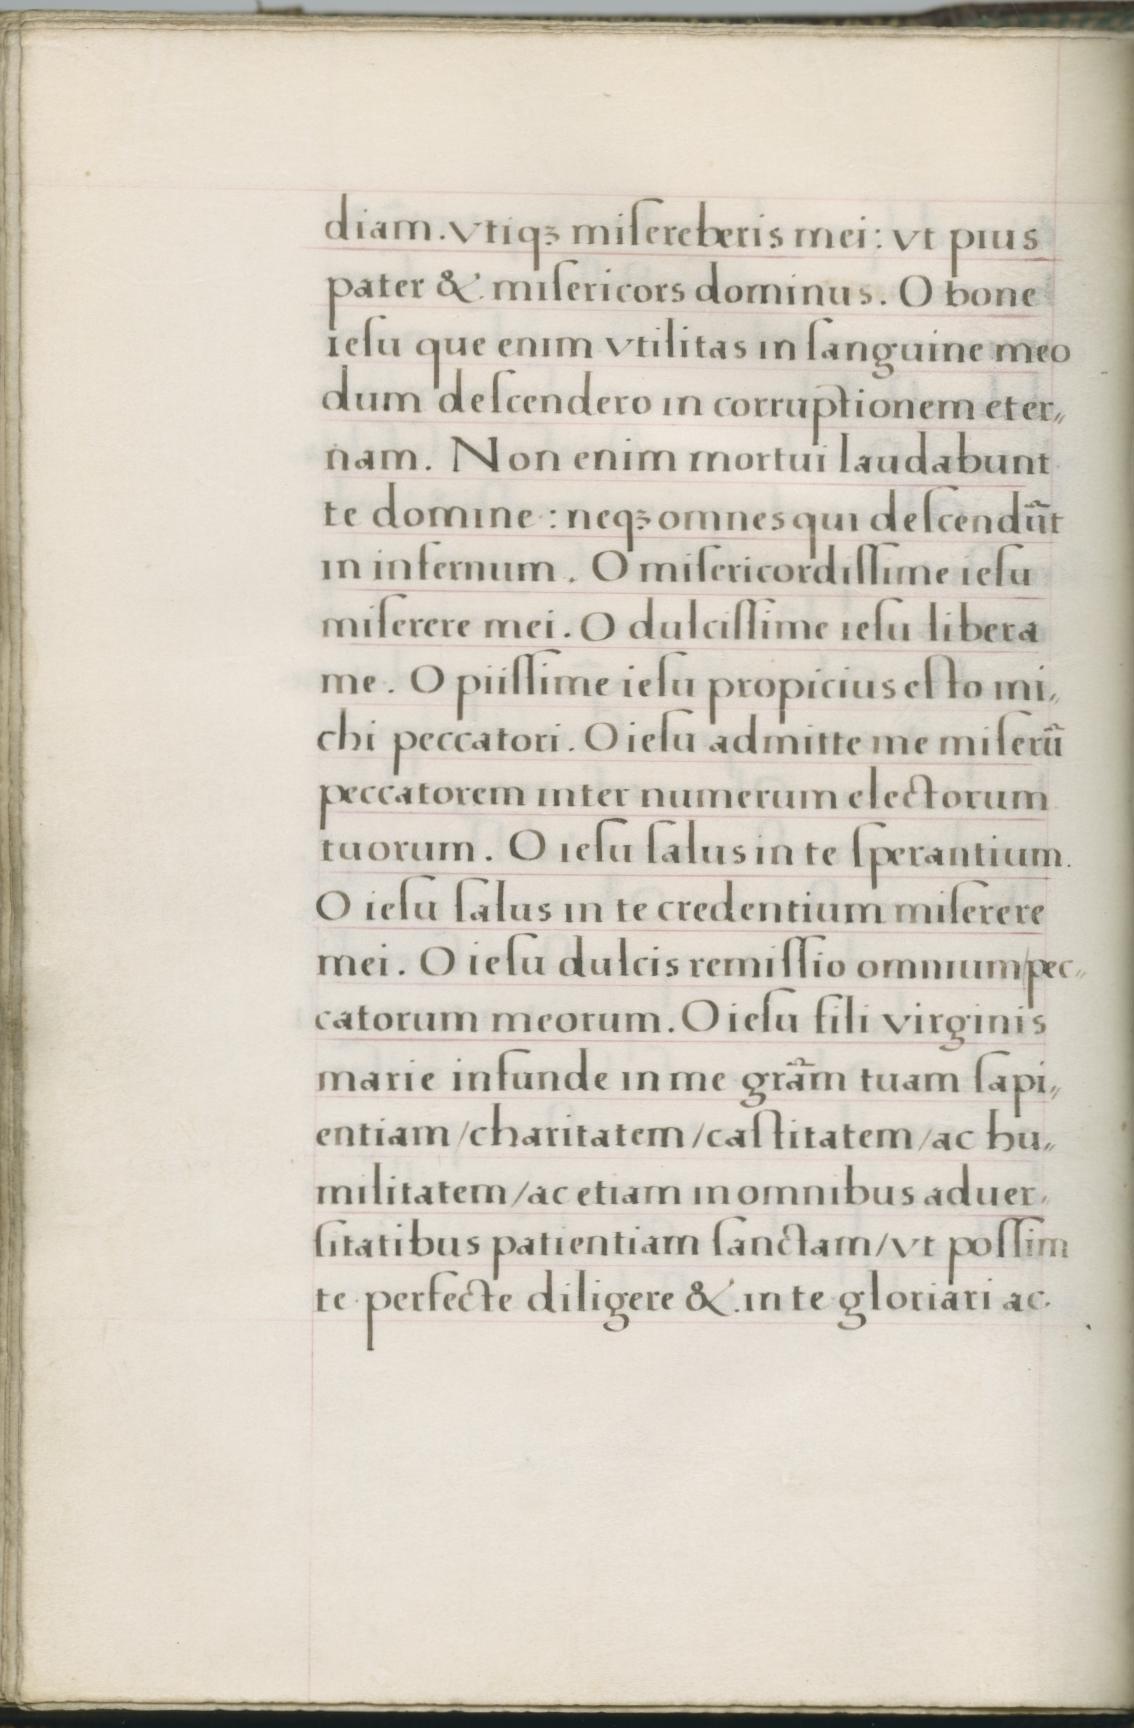 diam. vtiqꝫ miſereberis mei: vt pius
pater &. miſericors dominus. O bone
ieſu que enim vtilitas in ſanguine meo
dum deſcendero in corruptionem eter„
nam. Non enim mortui laudabunt
te domine: neqꝫ omnes qui deſcendũt
in infernum. O miſericordiſſime ieſu
miſerere mei. O dulciſſime ieſu libera
me. O piiſſime ieſu propicius eſto mi„
chi peccatori. O ieſu admitte me miſerũ
peccatorem inter numerum electorum
tuorum. O ieſu ſalus in te ſperantium.
O ieſu ſalus in te credentium miſerere
mei. O ieſu dulcis remiſſio omnium/pec„
catorum meorum. O ieſu fili virginis
marie infunde in me grãm tuam ſapi„
entiam/charitatem/caſtitatem/ac hu„
militatem/ac etiam in omnibus aduer„
ſitatibus patientiam ſanctam/vt poſſim
te perfecte diligere &. in te gloriari ac